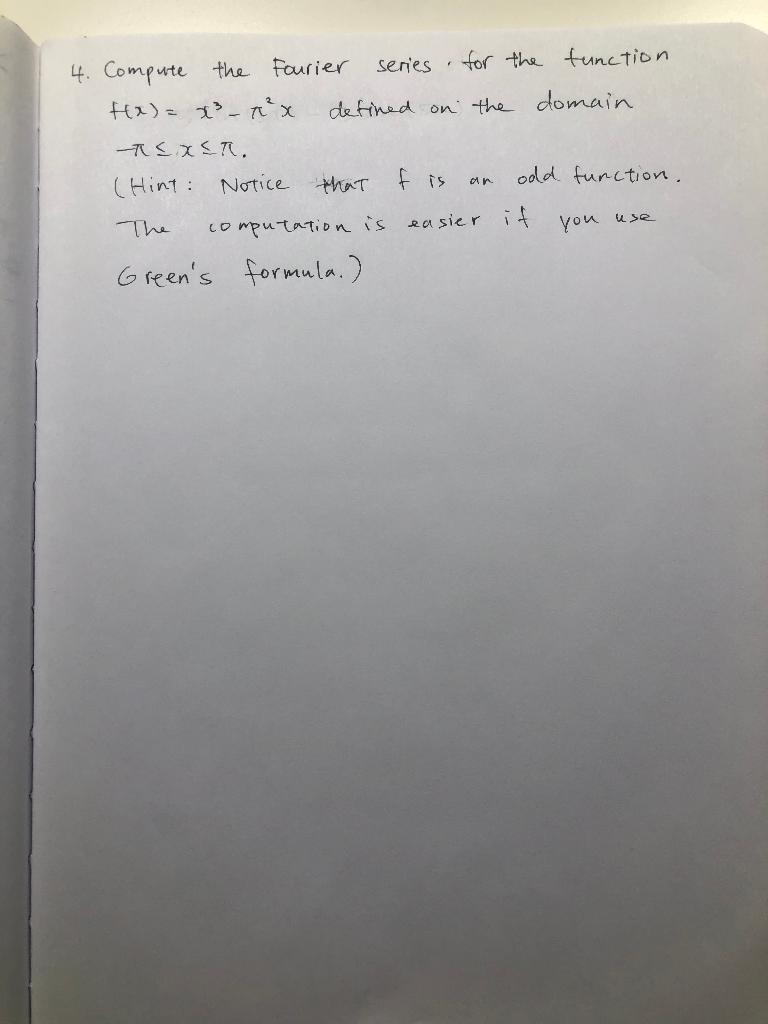 4. Compute the Fourier series for the function
f(x) = x³ - π²x defined on the domain
-π ≤ x ≤ π.
(Hint: Notice that f is an odd function.
The computation is easier if you use
Green's formula.)